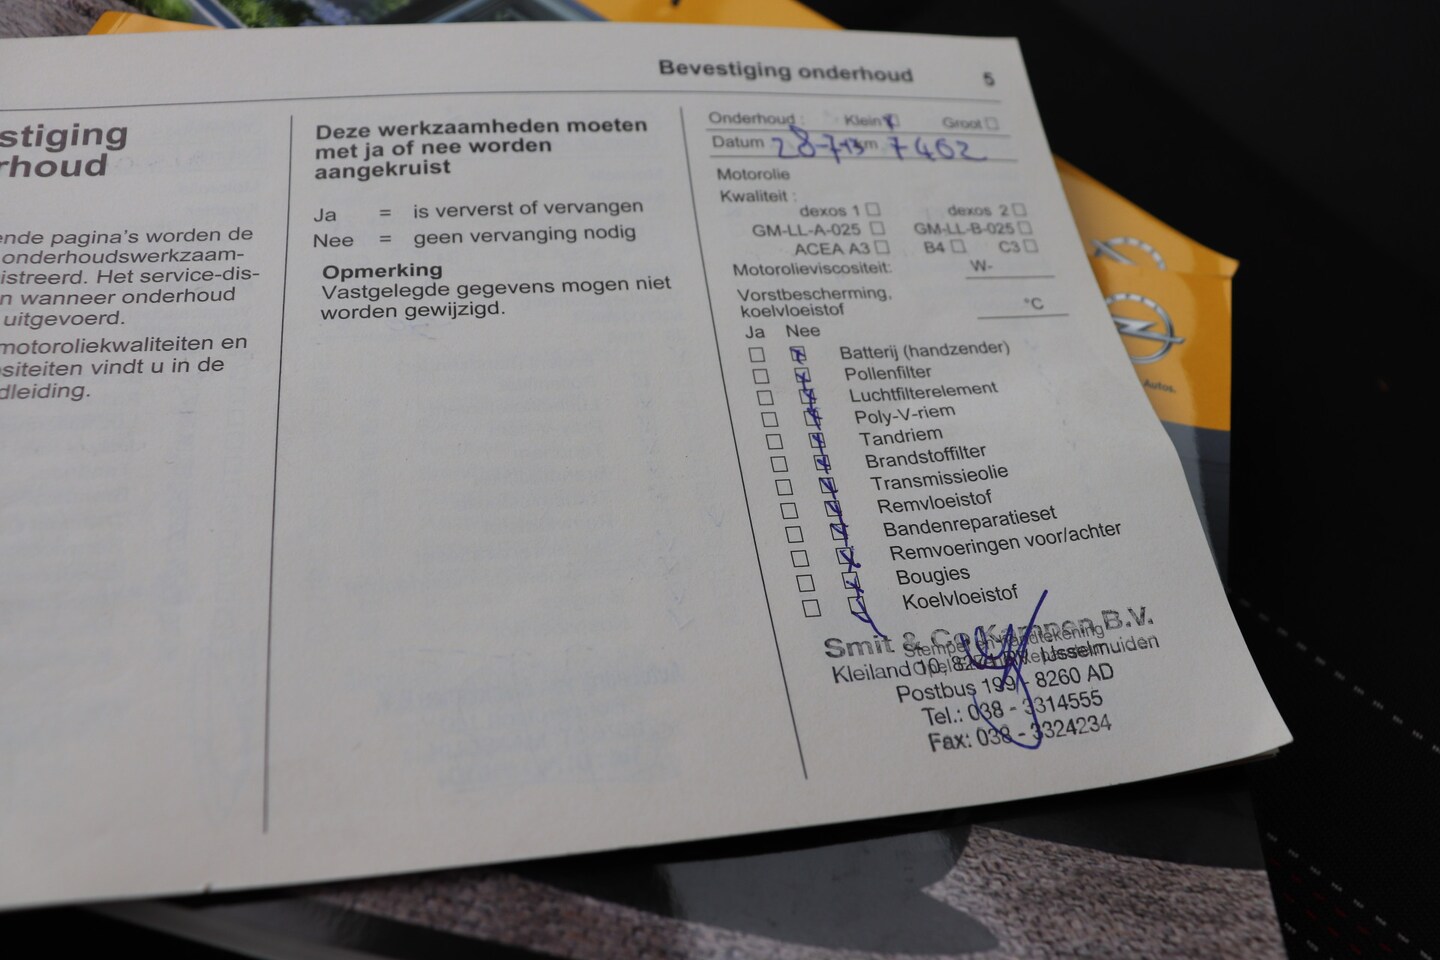 Bevestiging onderhoud 5
stiging
rhoud
ende pagina's worden de
onderhoudswerkzaam-
istreerd. Het service-dis-
n wanneer onderhoud
uitgevoerd.
motoroliekwaliteiten en
siteiten vindt u in de
dleiding.
Deze werkzaamheden moeten
met ja of nee worden
aangekruist
Ja = is ververst of vervangen
Nee = geen vervanging nodig
Opmerking
Vastgelegde gegevens mogen niet
worden gewijzigd.
Onderhoud : Klein Groot
Datum 28-7-13 km 7402
Motorolie
Kwaliteit :
dexos 1 dexos 2
GM-LL-A-025 GM-LL-B-025
ACEA A3 B4 C3
Motorolieviscositeit: W-
Vorstbescherming,
koelvloeistof °C
Ja Nee
Batterij (handzender)
Pollenfilter
Luchtfilterelement
Poly-V-riem
Tandriem
Brandstoffilter
Transmissieolie
Remvloeistof
Bandenreparatieset
Remvoeringen voor/achter
Bougies
Koelvloeistof
Smit & Co Kampen B.V.
Stempel en handtekening
Kleiland 10, IJsselmuiden
Postbus 199 - 8260 AD
Tel.: 038 - 3314555
Fax: 038 - 3324234
Autos.